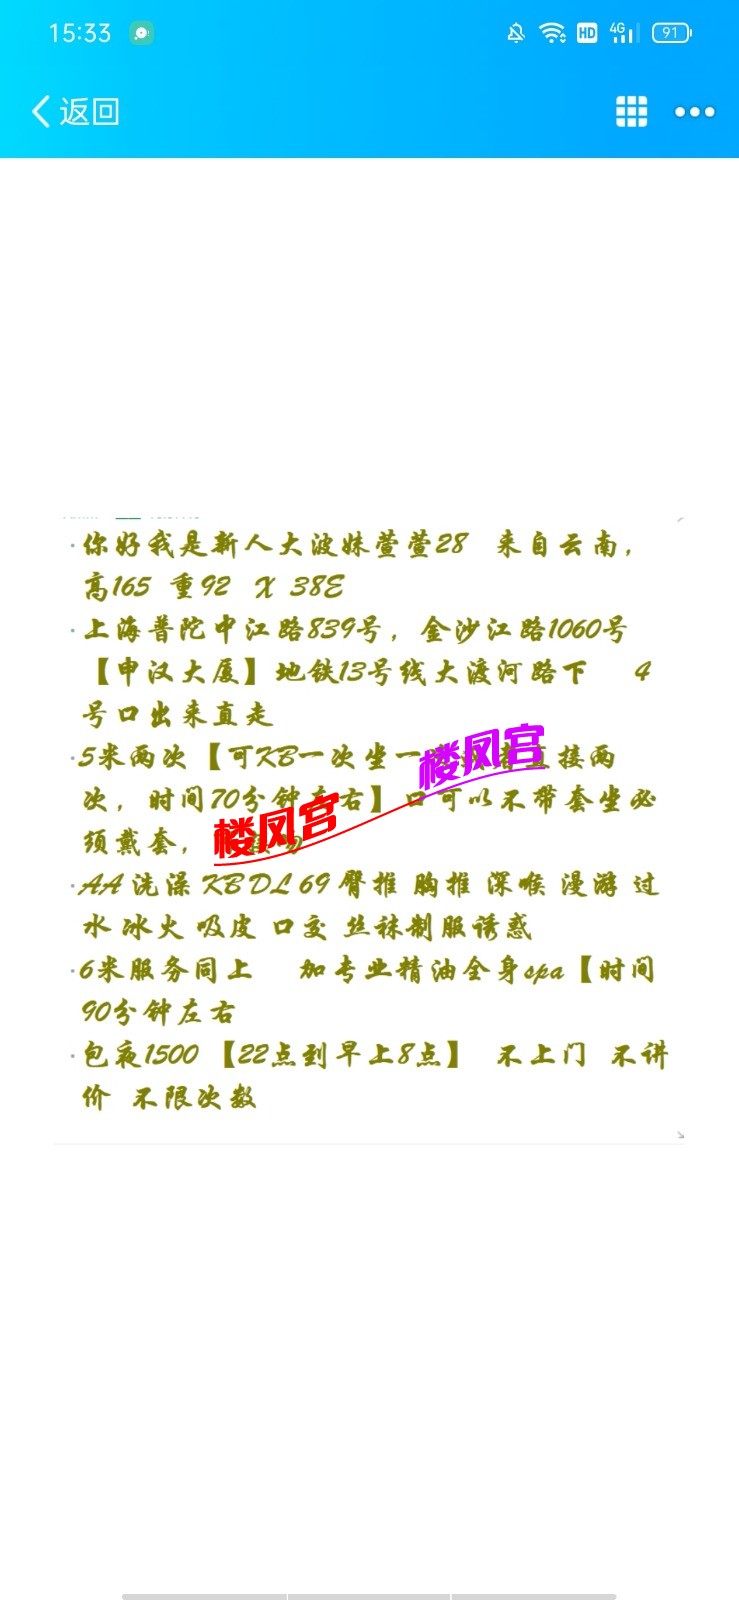 15:33
HD 4G 91
返回
你好我是新人大波妹萱萱28 来自云南，
高165 重92 X 38E
上海普陀中江路839号，金沙江路1060号
【申汉大厦】地铁13号线大渡河路下 4
号口出来直走
5米两次【可KB一次坐一 直接两
楼凤宫
次，时间70分钟左右】口可以不带套坐必
楼凤宫
须戴套，
AA 洗澡 KB DL 69 臀推 胸推 深喉 漫游 过
水 冰火 吸皮 口交 丝袜制服诱惑
6米服务同上 加专业精油全身spa【时间
90分钟左右
包夜1500 【22点到早上8点】 不上门 不讲
价 不限次数